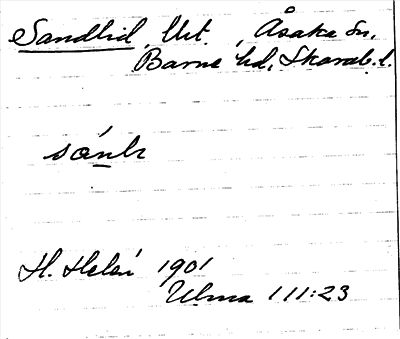 Sandlid, Urt., Åsaka sn,
Barne hd, Skarab. l.
sánlı
H. Helén 1901
Ulma 111:23